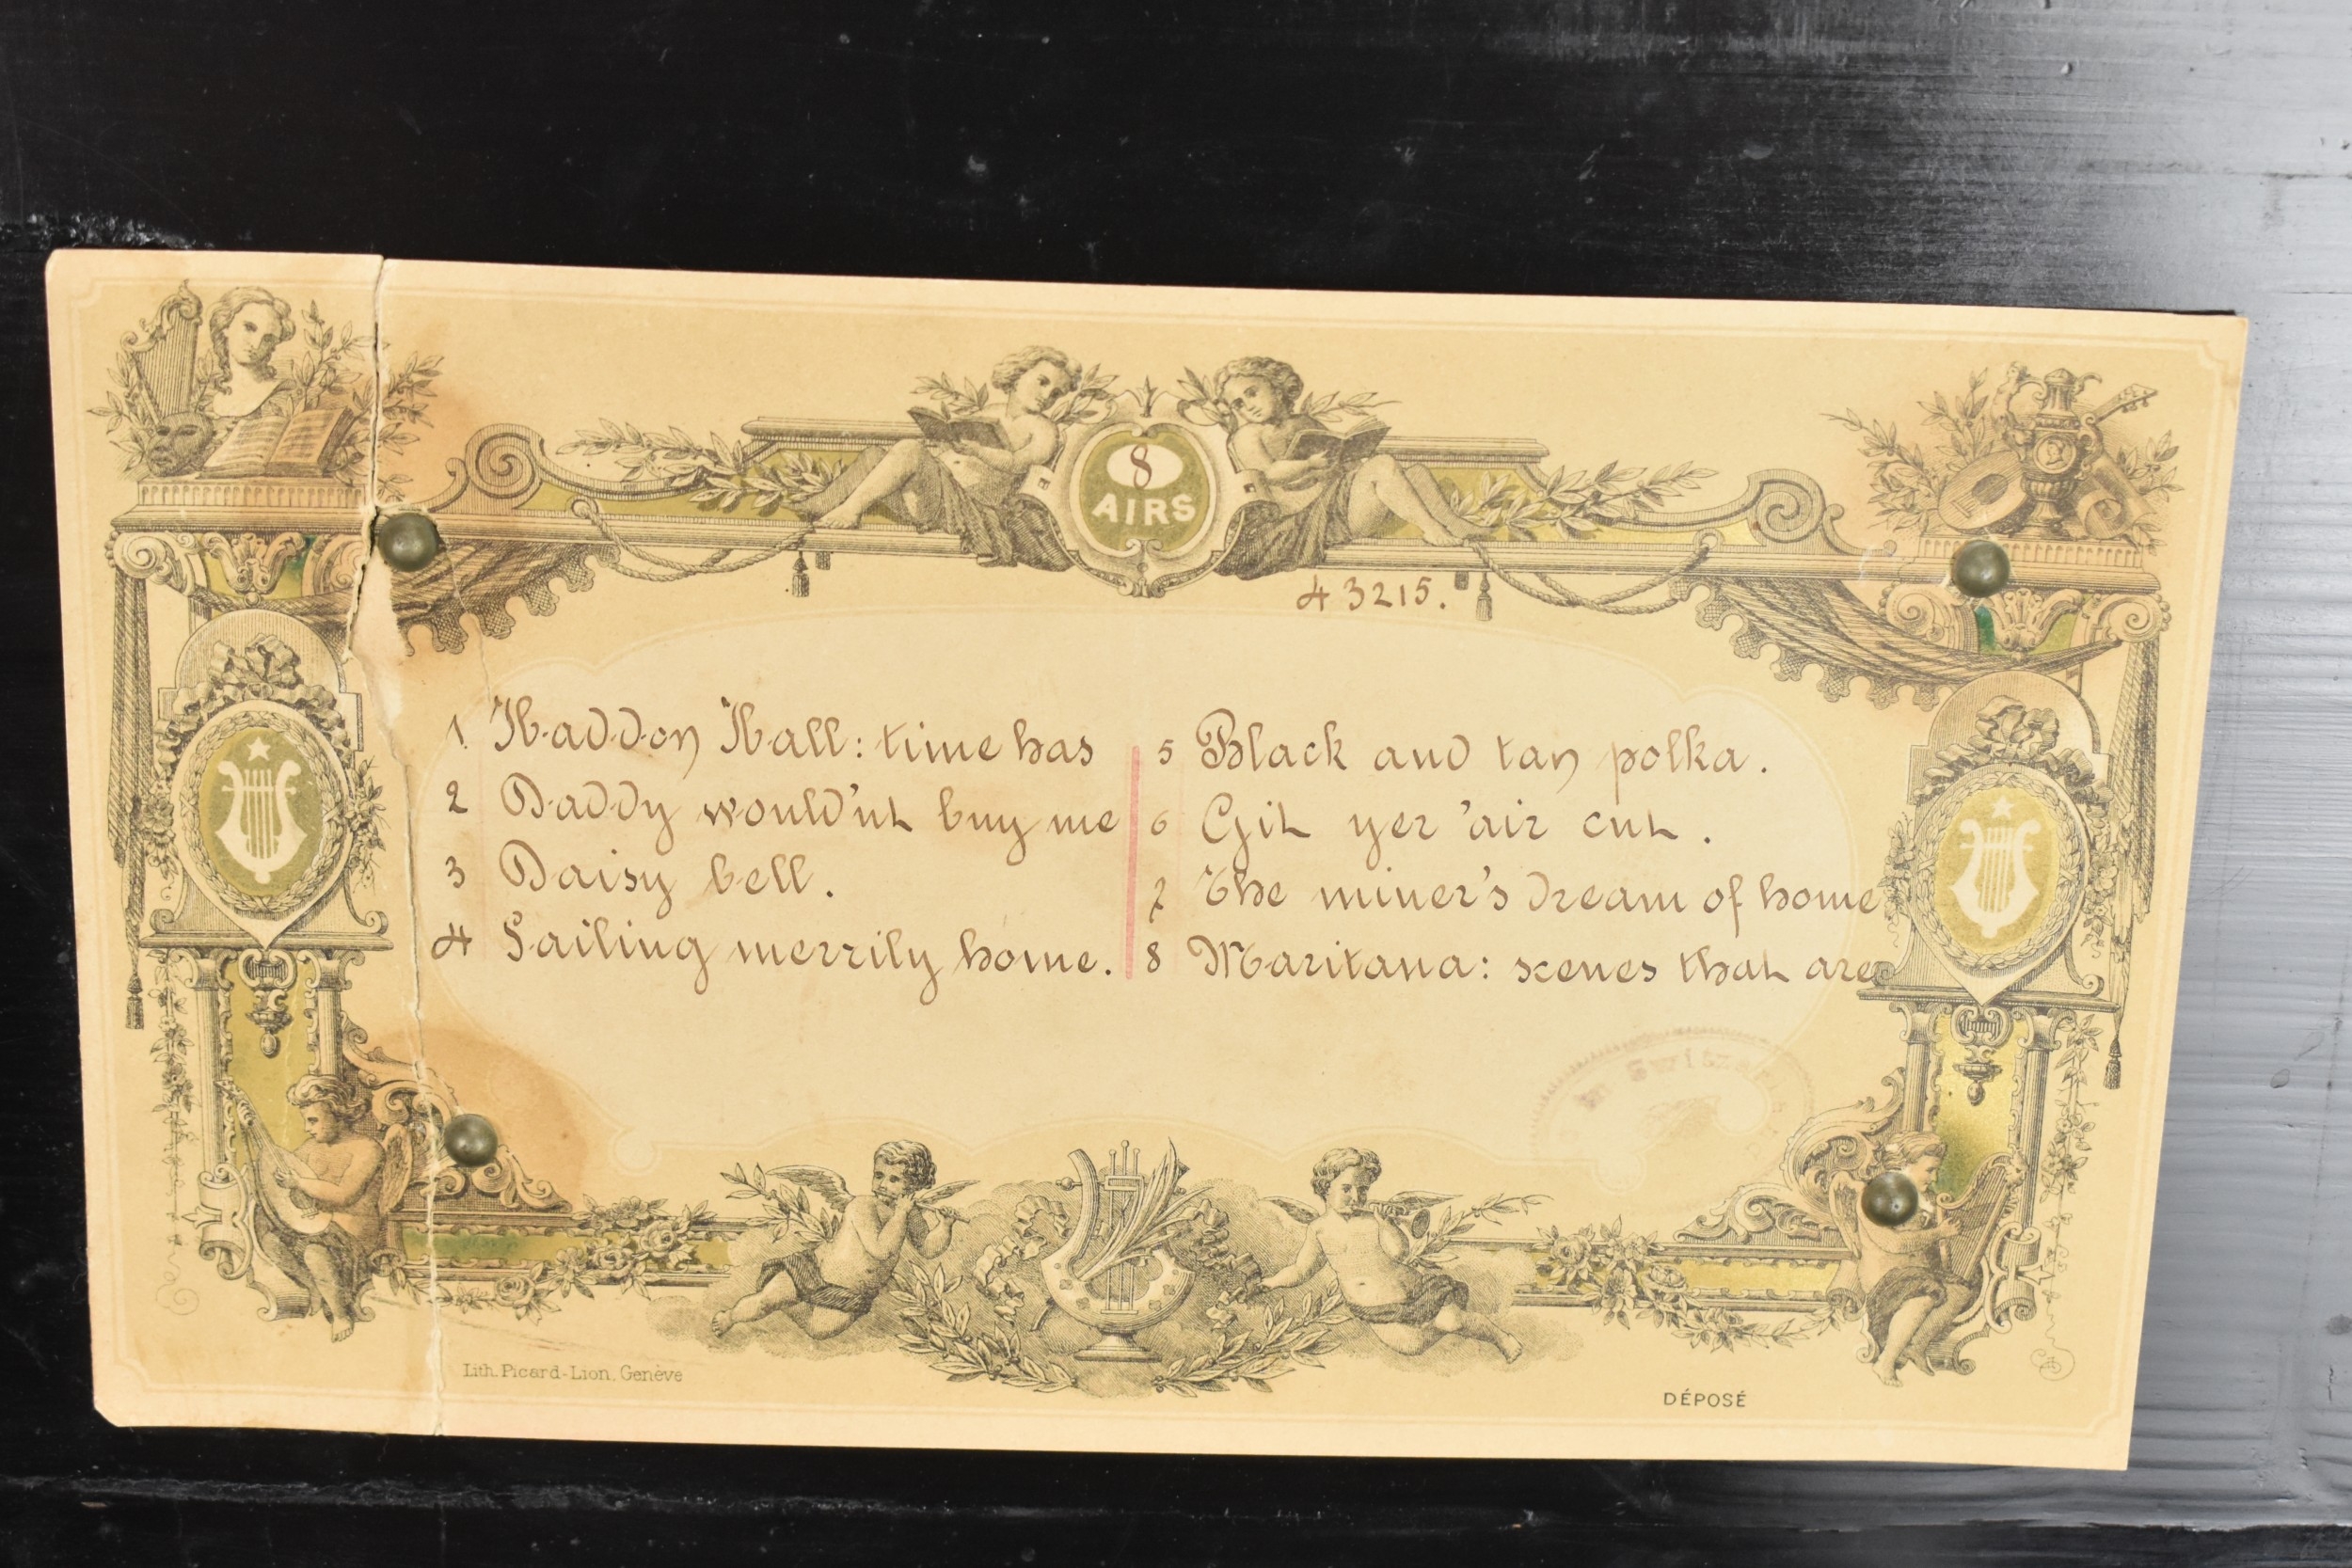 8
AIRS
43215.
1 Haddon Hall: time has
2 Daddy would'nt buy me
3 Daisy bell.
4 Sailing merrily home.
5 Black and tan polka.
6 Git yer 'air cut.
7 The miner's dream of home
8 Maritana: scenes that are
Lith. Picard-Lion, Genève
DÉPOSÉ